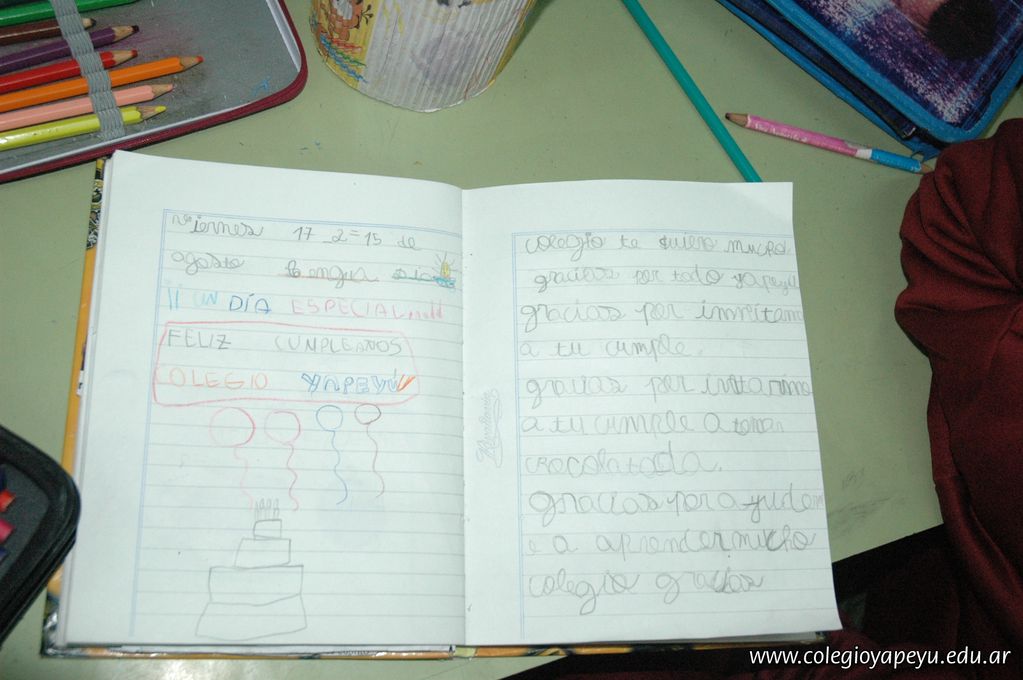 Viernes 17-2=15 de
agosto Lengua
UN DÍA ESPECIAL
FELIZ CUMPLEAÑOS
COLEGIO YAPEYÚ
colegio te quiero mucho
gracias por todo yapeyu
gracias por invitarme
a tu cumple.
gracias por invtarme
a tu cumple a tomar
chocolatada.
gracias por ayudarm
e a aprender mucho
colegio gracias
Rivadavia
www.colegioyapeyu.edu.ar